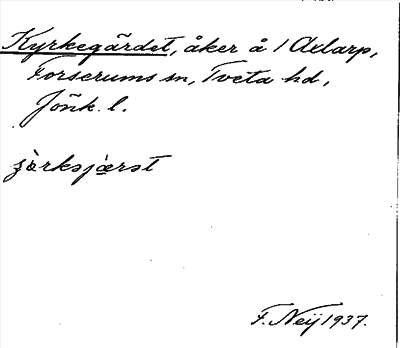 Kyrkegärdet, åker å 1 Axlarp,
Forserums sn, Tveta hd,
Jönk. l.
F. Neÿ 1937.